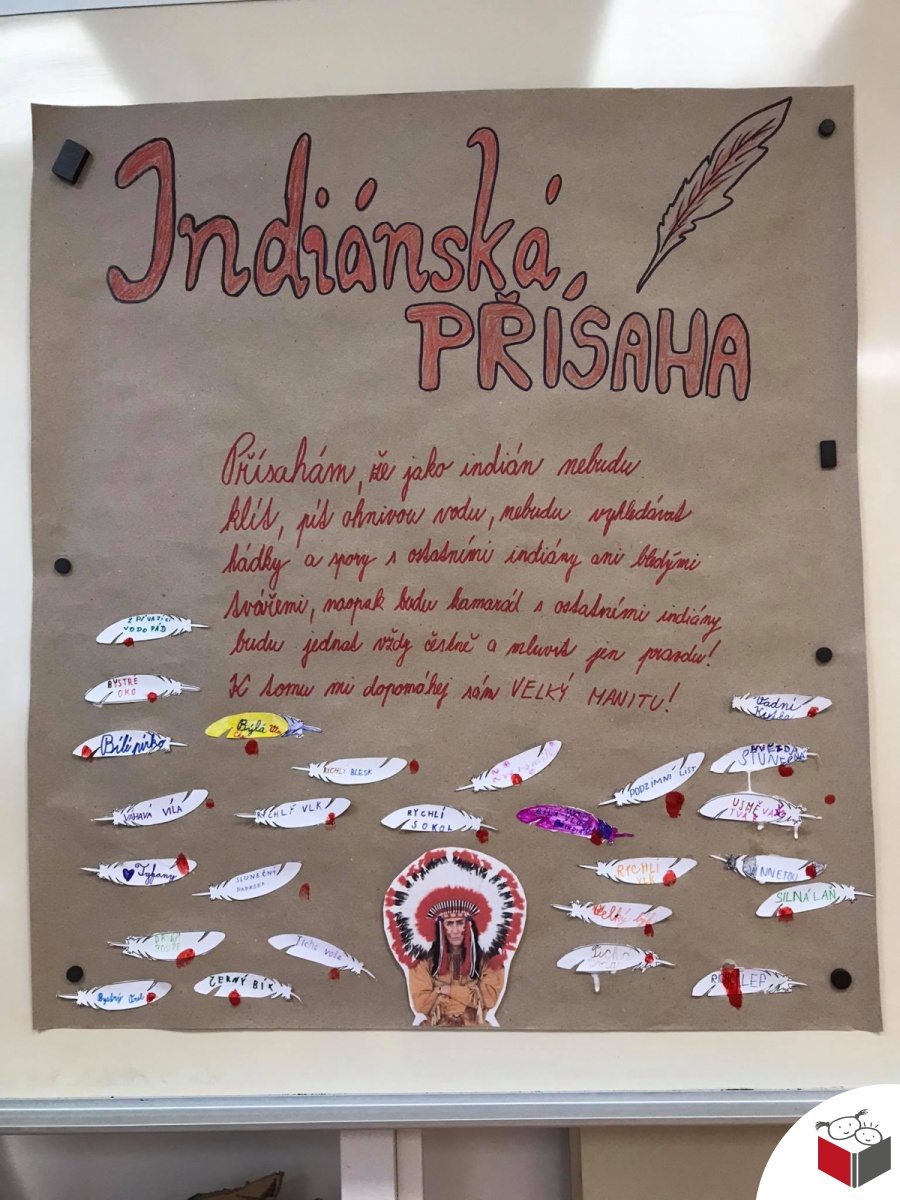 Indiánská
PŘÍSAHA
Přísahám, že jako indián nebudu
klít, pít ohnivou vodu, nebudu vyhledávat
hádky a spory s ostatními indiány ani bledými
tvářemi, naopak budu kamarád s ostatními indiány
budu jednat vždy čestně a mluvit jen pravdu!
K tomu mi dopomáhej sám VELKÝ MANITU!
ZPÍVAJÍCÍ
VODOPÁD
BYSTRÉ
OKO
Bílé pírko
Býlá
RYCHLÝ BLESK
PODZIMNÍ LIST
HVĚZDA
VÁHAVÁ VÍLA
RYCHLÝ VLK
RYCHLÍ
SOKOL
Tvfany
SLUNEČNÝ
RYCHLÍ
VLK
WINNETOU
SILNÁ LAŇ
Velký býk
Tichá voda
Tichá
ČERNÝ BÍK
Bystrý Orel